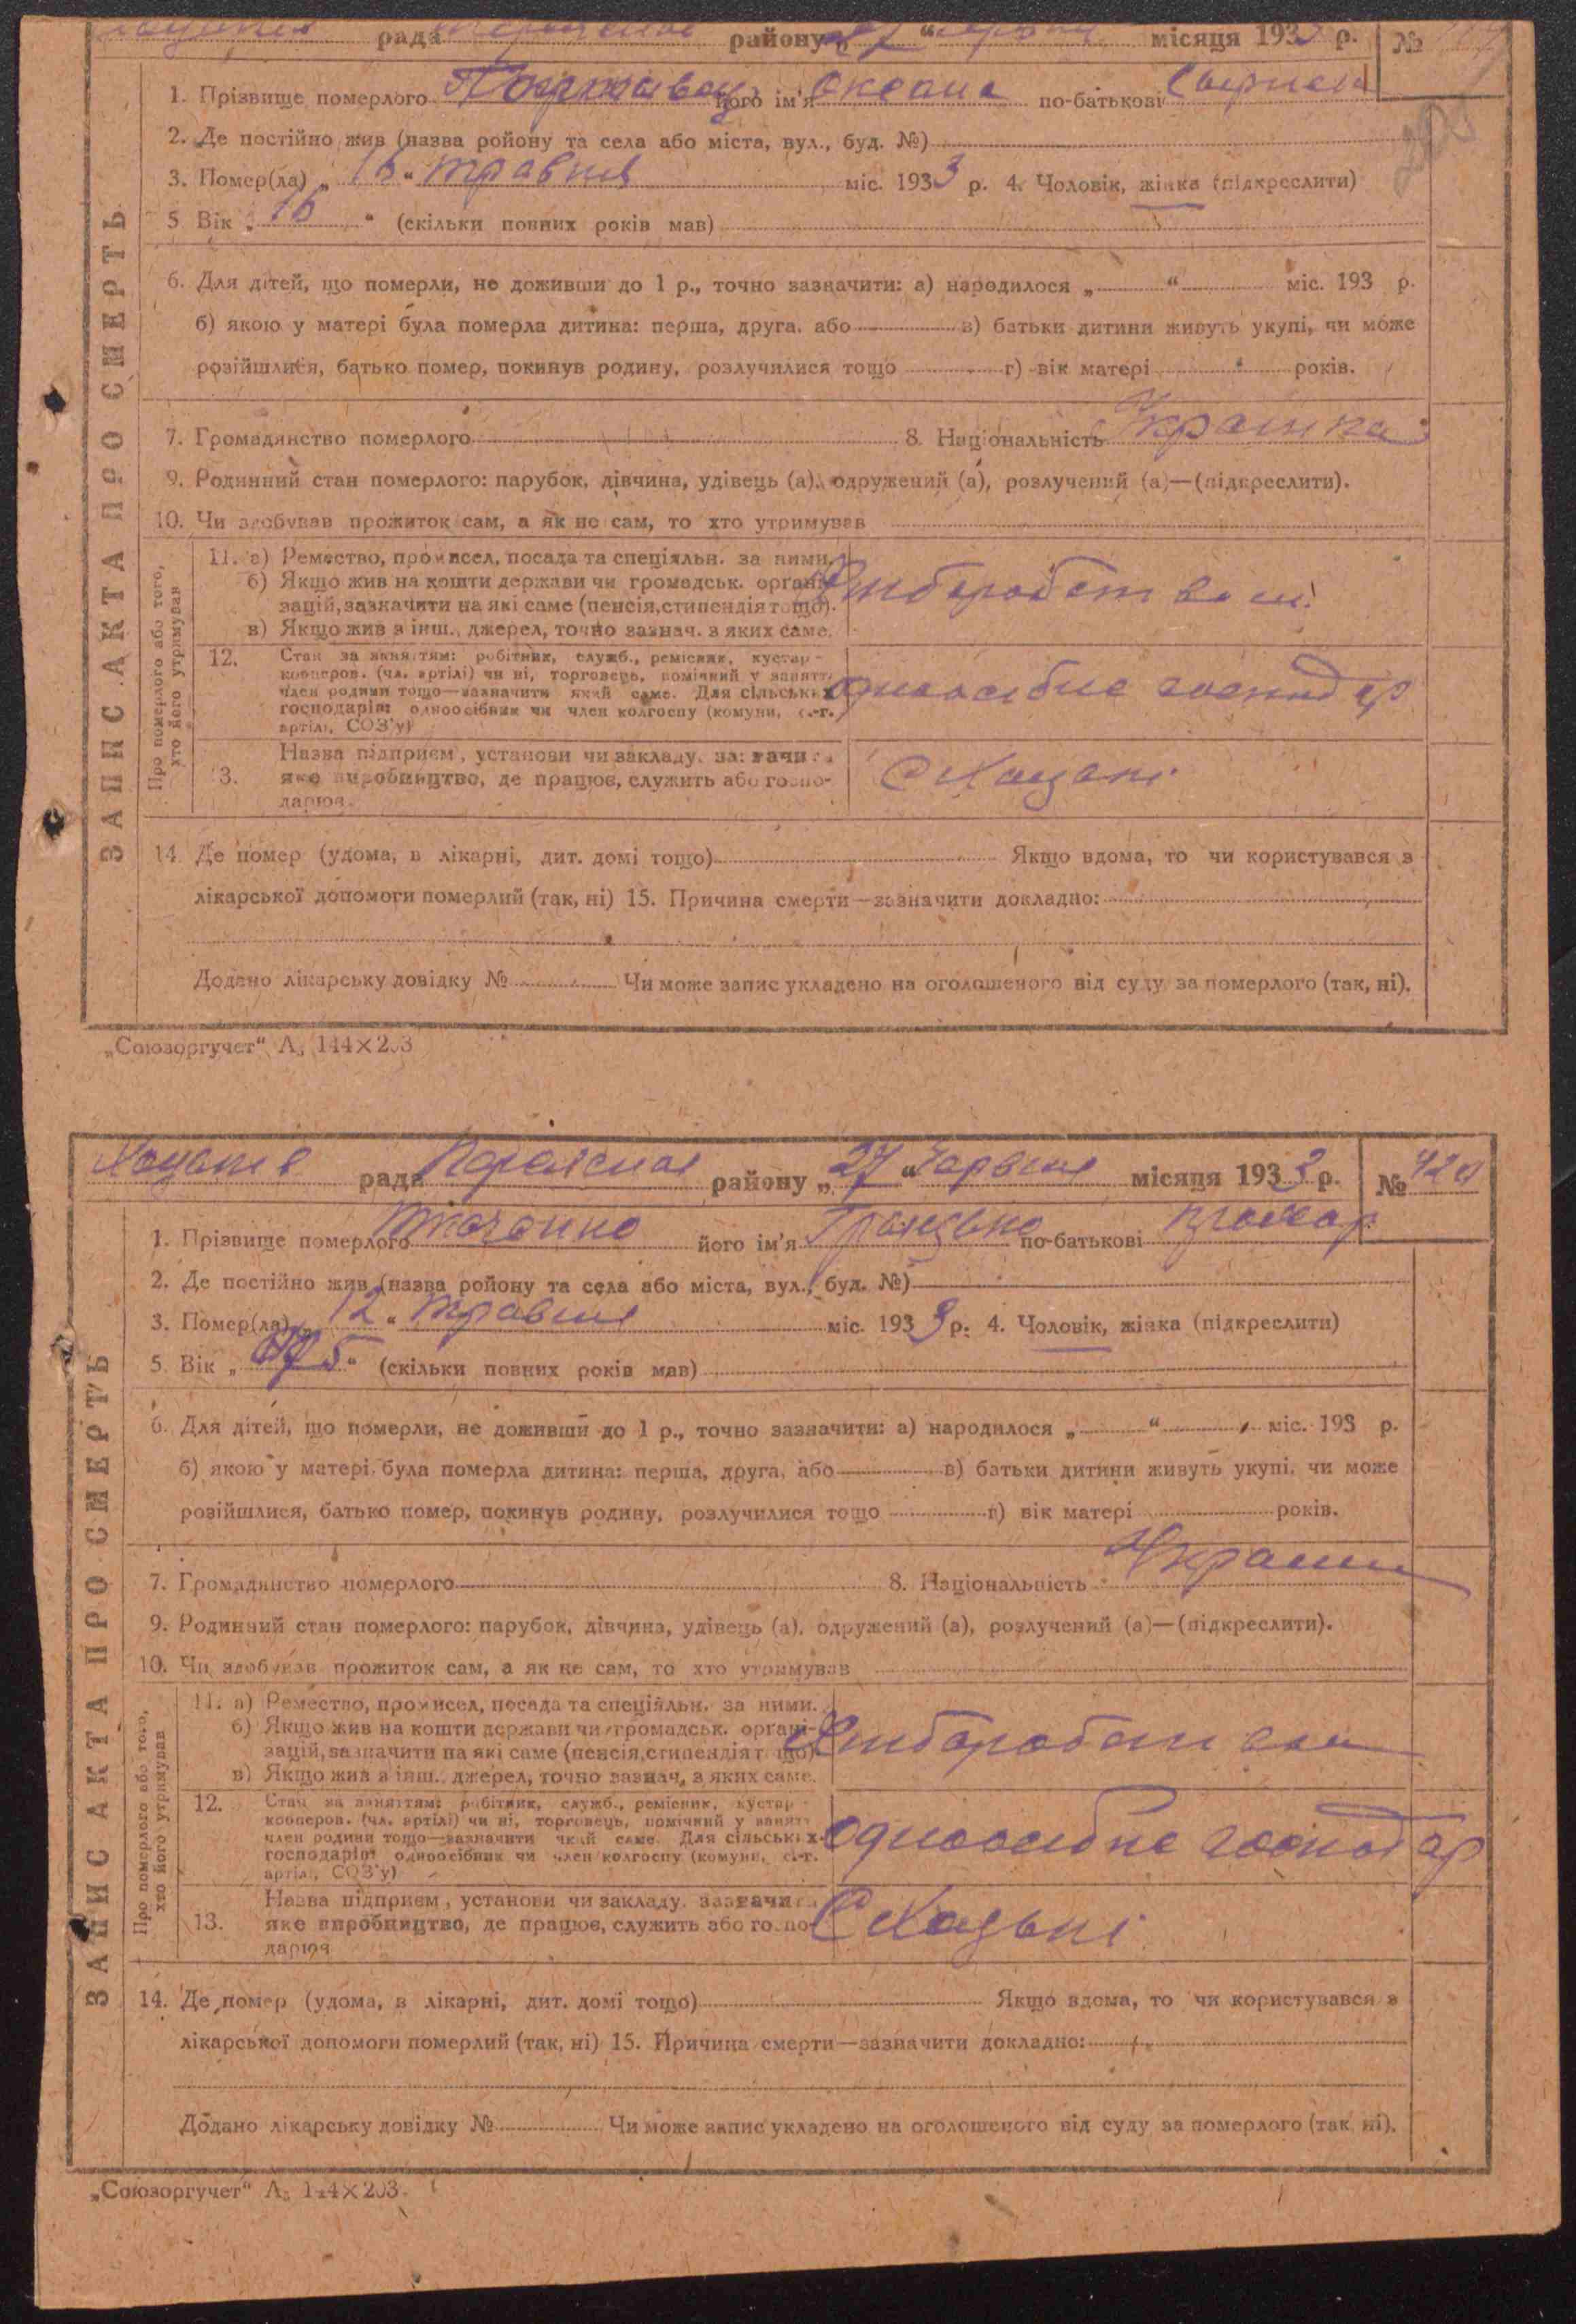 рада району „27“ місяця 1933 р. №
1. Прізвище померлого його ім'я Оксана по-батькові
2. Де постійно жив (назва ройону та села або міста, вул., буд. №)
3. Помер(ла) „16“ травня міс. 1933 р. 4. Чоловік, жінка (підкреслити)
5 Вік „16“ (скільки повних років мав)
6. Для дітей, що померли, не доживши до 1 р., точно зазначити: а) народилося „ “ міс. 193 р.
б) якою у матері була померла дитина: перша, друга, або в) батьки дитини живуть укупі, чи може
розійшлися, батько помер, покинув родину, розлучилися тощо г) вік матері років.
7. Громадянство померлого 8. Національність Українка
9. Родинний стан померлого: парубок, дівчина, удівець (а), одружений (а), розлучений (а)—(підкреслити).
10. Чи здобував прожиток сам, а як не сам, то хто утримував
ЗАПИС АКТА ПРО СМЕРТЬ
Про померлого або того, хто його утримував
11. а) Ремество, промисел, посада та спеціяльн. за ними.
б) Якщо жив на кошти держави чи громадськ. органі-
зацій, зазначити на які саме (пенсія, стипендія тощо).
в) Якщо жив з інш., джерел, точно зазнач. з яких саме.
12. Стан за заняттям: робітник, служб., ремісник, кустар -
кооперов. (чл. артілі) чи ні, торговець, помічний у занятт.
член родини тощо—зазначити який саме. Для сільських
господарів: одноосібник чи член колгоспу (комуни, с.-г.
артілі, СОЗ'у)
одноосібне господар
13. Назва підприєм, установи чи закладу, зазначити
яке виробництво, де працює, служить або госпо-
дарює.
С Хацьки
14. Де помер (удома, в лікарні, дит. домі тощо) Якщо вдома, то чи користувався з
лікарської допомоги померлий (так, ні) 15. Причина смерти—зазначити докладно:
Додано лікарську довідку № Чи може запис укладено на оголошеного від суду за померлого (так, ні).
„Союзоргучет“ А₅ 144×203
рада району „27“ Червня місяця 1933 р. № 420
1. Прізвище померлого Ткаченко його ім'я по-батькові
2. Де постійно жив (назва ройону та села або міста, вул., буд. №)
3. Помер(ла) „12“ травня міс. 1933 р. 4. Чоловік, жінка (підкреслити)
5. Вік „ “ (скільки повних років мав)
6. Для дітей, що померли, не доживши до 1 р., точно зазначити: а) народилося „ “ міс. 193 р.
б) якою у матері була померла дитина: перша, друга, або в) батьки дитини живуть укупі, чи може
розійшлися, батько помер, покинув родину, розлучилися тощо г) вік матері років.
7. Громадянство померлого 8. Національність
9. Родинний стан померлого: парубок, дівчина, удівець (а), одружений (а), розлучений (а)—(підкреслити).
10. Чи здобував прожиток сам, а як не сам, то хто утримував
ЗАПИС АКТА ПРО СМЕРТЬ
Про померлого або того, хто його утримував
11. а) Ремество, промисел, посада та спеціяльн. за ними.
б) Якщо жив на кошти держави чи громадськ. органі-
зацій, зазначити на які саме (пенсія, стипендія тощо)
в) Якщо жив з інш., джерел, точно зазнач. з яких саме.
12. Стан за заняттям: робітник, служб., ремісник, кустар -
кооперов. (чл. артілі) чи ні, торговець, помічний у занятт.
член родини тощо—зазначити який саме. Для сільських
господарів одноосібник чи член колгоспу (комуни, с.-г.
артілі, СОЗ'у)
одноосібне господар
13. Назва підприєм, установи чи закладу, зазначити
яке виробництво, де працює, служить або госпо-
дарює
С Хацьки
14. Де помер (удома, в лікарні, дит. домі тощо) Якщо вдома, то чи користувався з
лікарської допомоги померлий (так, ні) 15. Причина смерти—зазначити докладно:
Додано лікарську довідку № Чи може запис укладено на оголошеного від суду за померлого (так, ні).
„Союзоргучет“ А₅ 144×203.